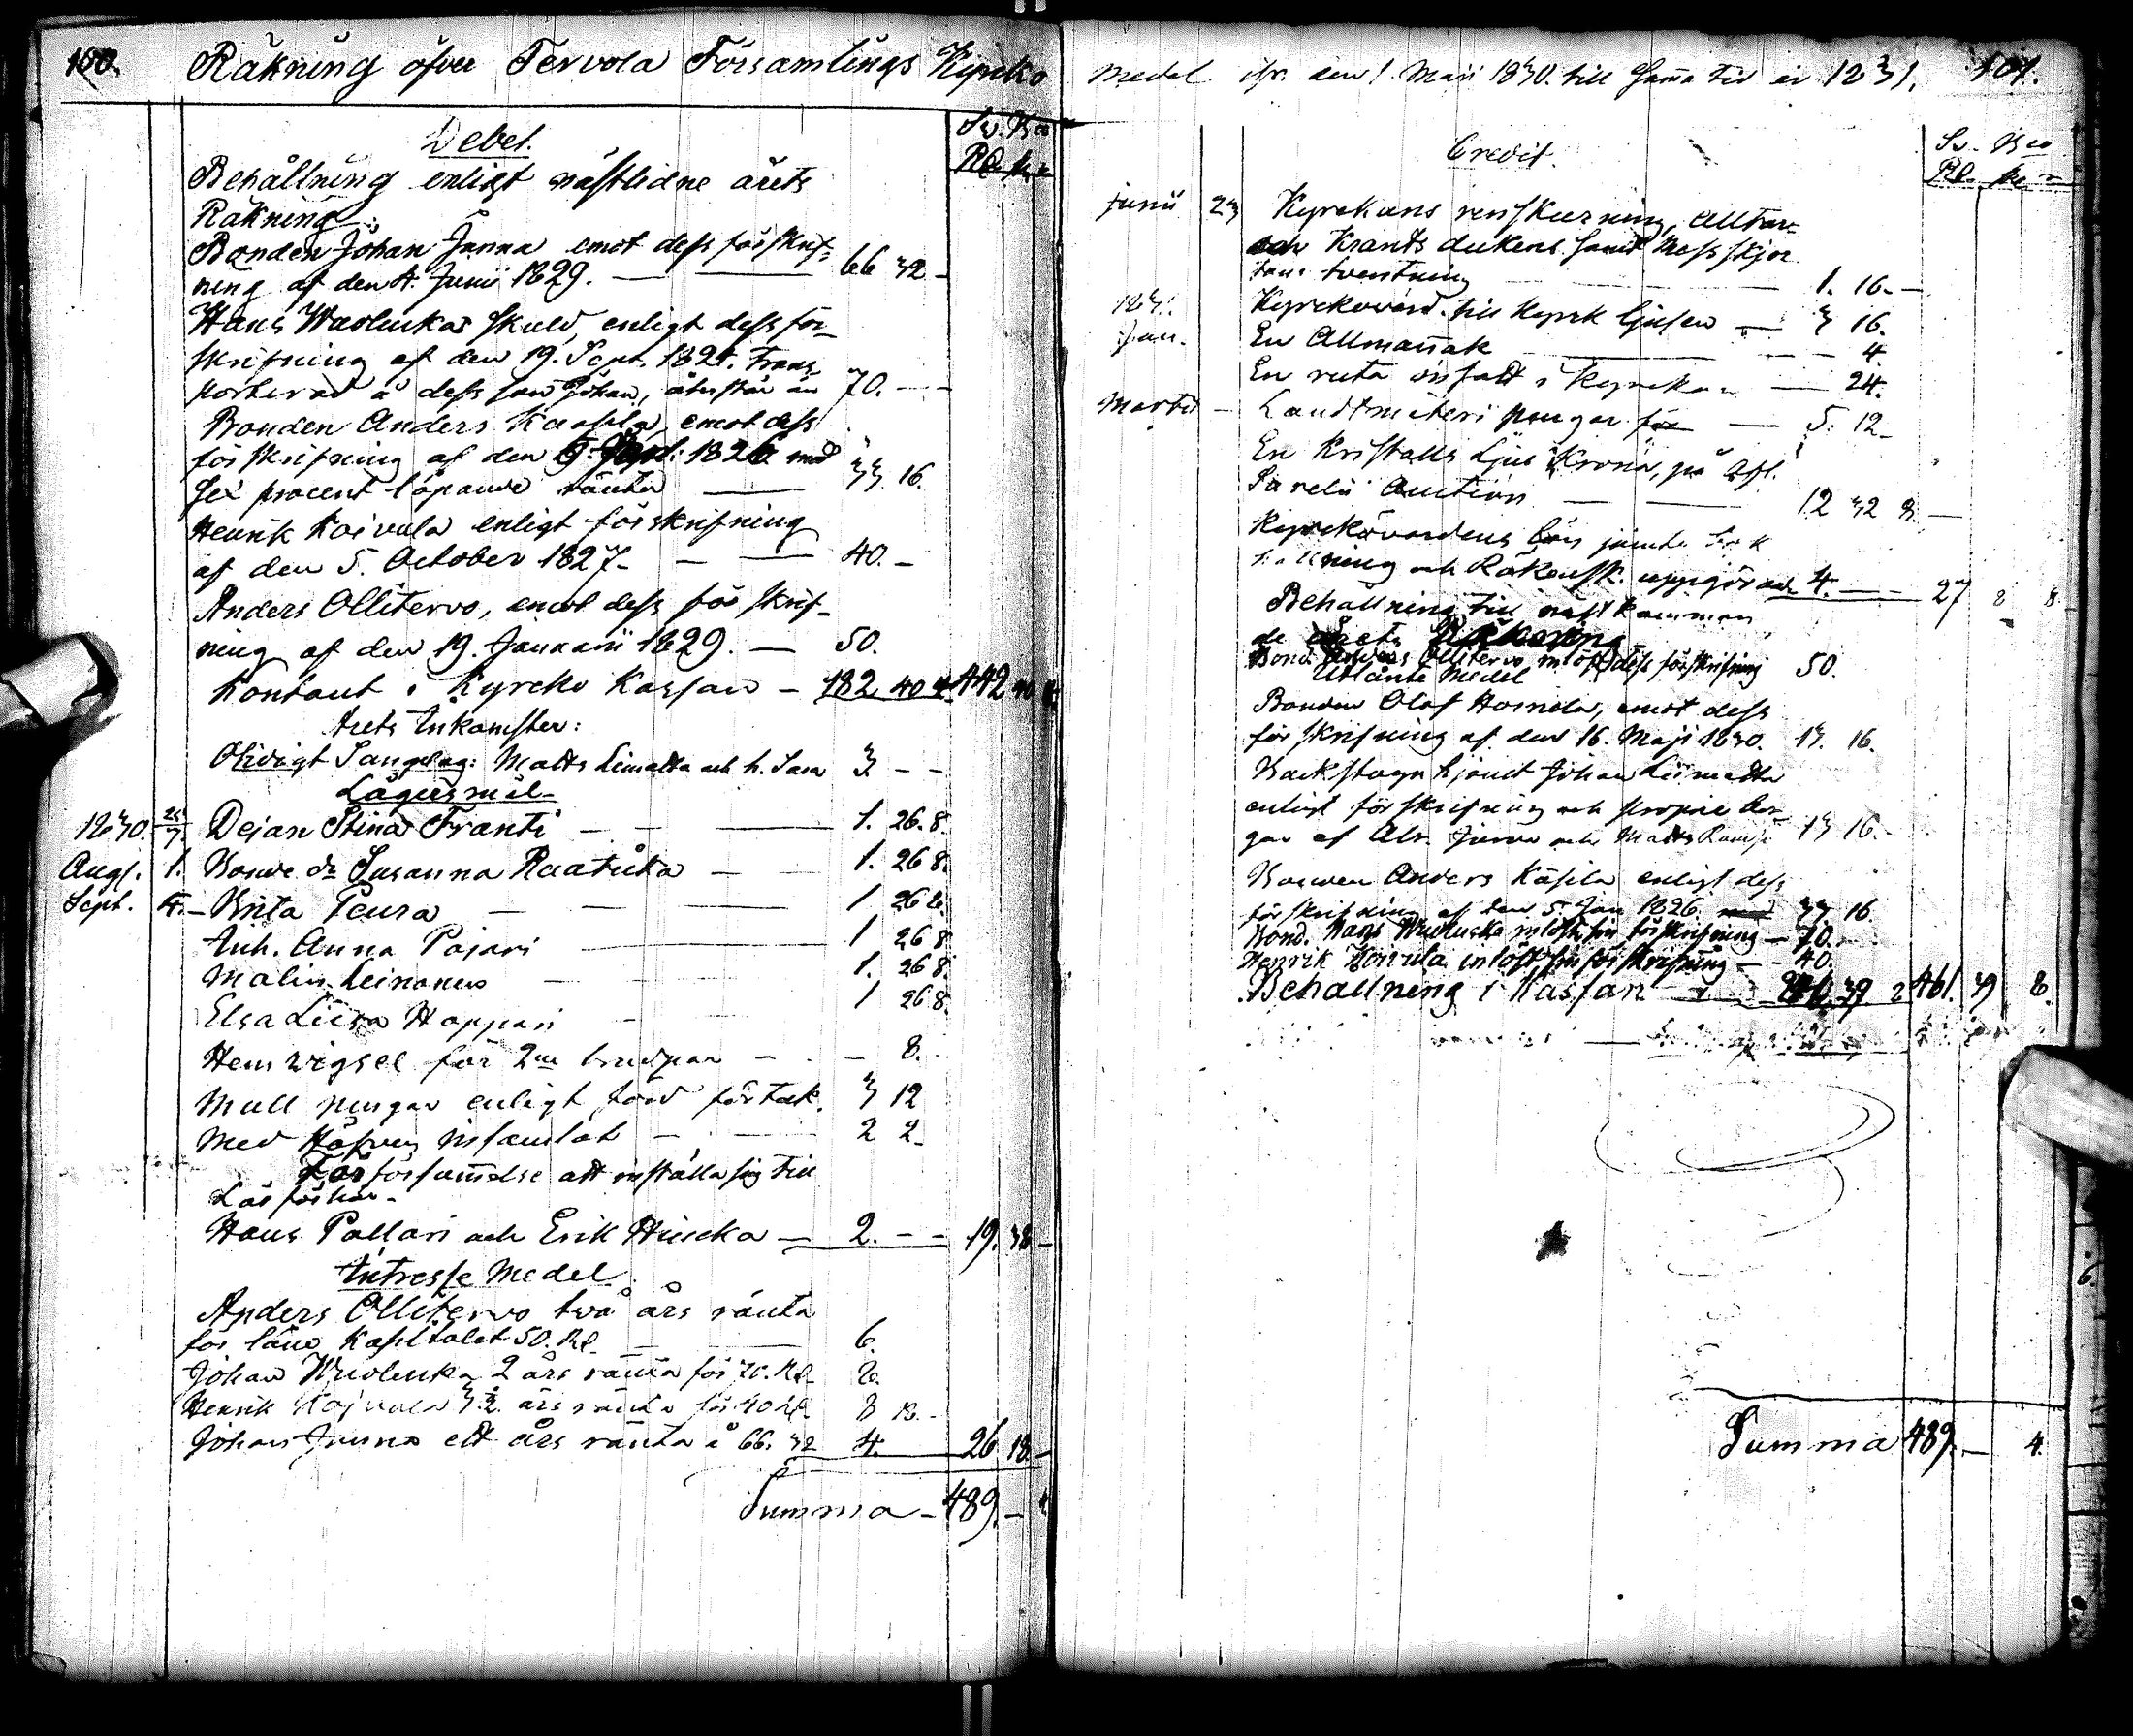 100.
Räkning öfver Tervola Församlings Kyrko
Debet.
Sv. Bco
Rd. sk. r
Behållning enligt nästledne årets
Räkning:
Bonden Johan Junna emot dess förskrif-
ning af den 4. Junii 1829. — 66 32 -
Hans Wuolukas skuld enligt dess för-
skrifning af den 19. Sept. 1824. trans-
porterad å dess son Johan, återstår än 70. - -
Bonden Anders Kaspla, emot dess
förskrifning af den 5. 1826 med
sex procent löpande ränta — 33. 16.
Henrik Koivula enligt förskrifning
af den 5. October 1827 - — 40. -
Anders Ollitervo, emot dess förskrif-
ning af den 19. Januarii 1829. — 50.
Kontant i Kyrko Kassan - 182 40 4 442 40 4
Årets Inkomster:
Olidigt Sängelag: Matts Liimatta och h. Sara 3 - -
Lägersmål
1830. 25/7 Dejan Stina Franti — 1. 26. 8.
Aug. 1. Bonde dr Susanna Raatuka — 1. 26 8.
Sept. 4. - Brita Peura — 1 26 8.
Inh. Anna Pajari — 1 26 8
Malin Leinonen — 1. 26 8.
Elsa Liisa Hoppari — 1 26 8.
Hemvigsel för 2ne brudpar — 8.
Mull pengar enligt förd förtek. 3 12
Med Håfven insamlat — 2 2
För försummelse att inställa sig till
Läsförhör -
Hans Pallari och Erik Hiucka — 2. - - 19. 38 -
Intresse Medel.
Anders Ollitervo två års ränta
för låne Kapitalet 50. Rd. — 6.
Johan Wuolucka 2 års ränta för 70. Rd. 8.
Henrik Koivula 3½ års ränta för 40 Rd. 8 18. -
Johan Junna ett års ränta å 66. 32 4. 26 18. -
Summa - 489. - 4
medel ifr. den 1. Maii 1830. till samma tid år 1831.
101.
Credit.
Sv. Bco
Rd. sk. r
Junii 23 Kyrkans renskurning, Altar-
och Krants dukens samt Mess skjor
tans tvettning — 1. 16. -
1831. Kyrkovärd. till Kyrk ljusen — 3 16.
Jan. En Allmanak — 4
En ruta insatt i Kyrkan — 24.
Martii - Landtmäteri pengar för — 5. 12 -
En Kristalls Ljus Krona, på Afl.
Sarelii Auction — 12 32 8. -
Kyrkovärdens lön jämte bok
hållning och Räkensk. uppgörande 4. - - 27 8 8.
Behållning till nästkomman
de årets Räkning
Bond. Anders Ollitervo inlöst dess förskrifning 50.
Utlånte Medel
Bonden Olof Hornila, emot dess
förskrifning af den 16. Maji 1830. 13. 16.
Backstugu hjonet Johan Liimatta
enligt förskrifning och proprie bor-
gen af Abr. Jurva och Matts 13 16. -
Bonden Anders Kaspla enligt dess
förskrifning af den 5. Jan 1826. med 33 16
Bond. Hans Wuolucka inlöst sin förskrifning — 70. -
Henrik Koivula inlöst sin förskrifning — 40.
Behållning i Kassan — 39 461. 39 8.
Summa 489. — 4.